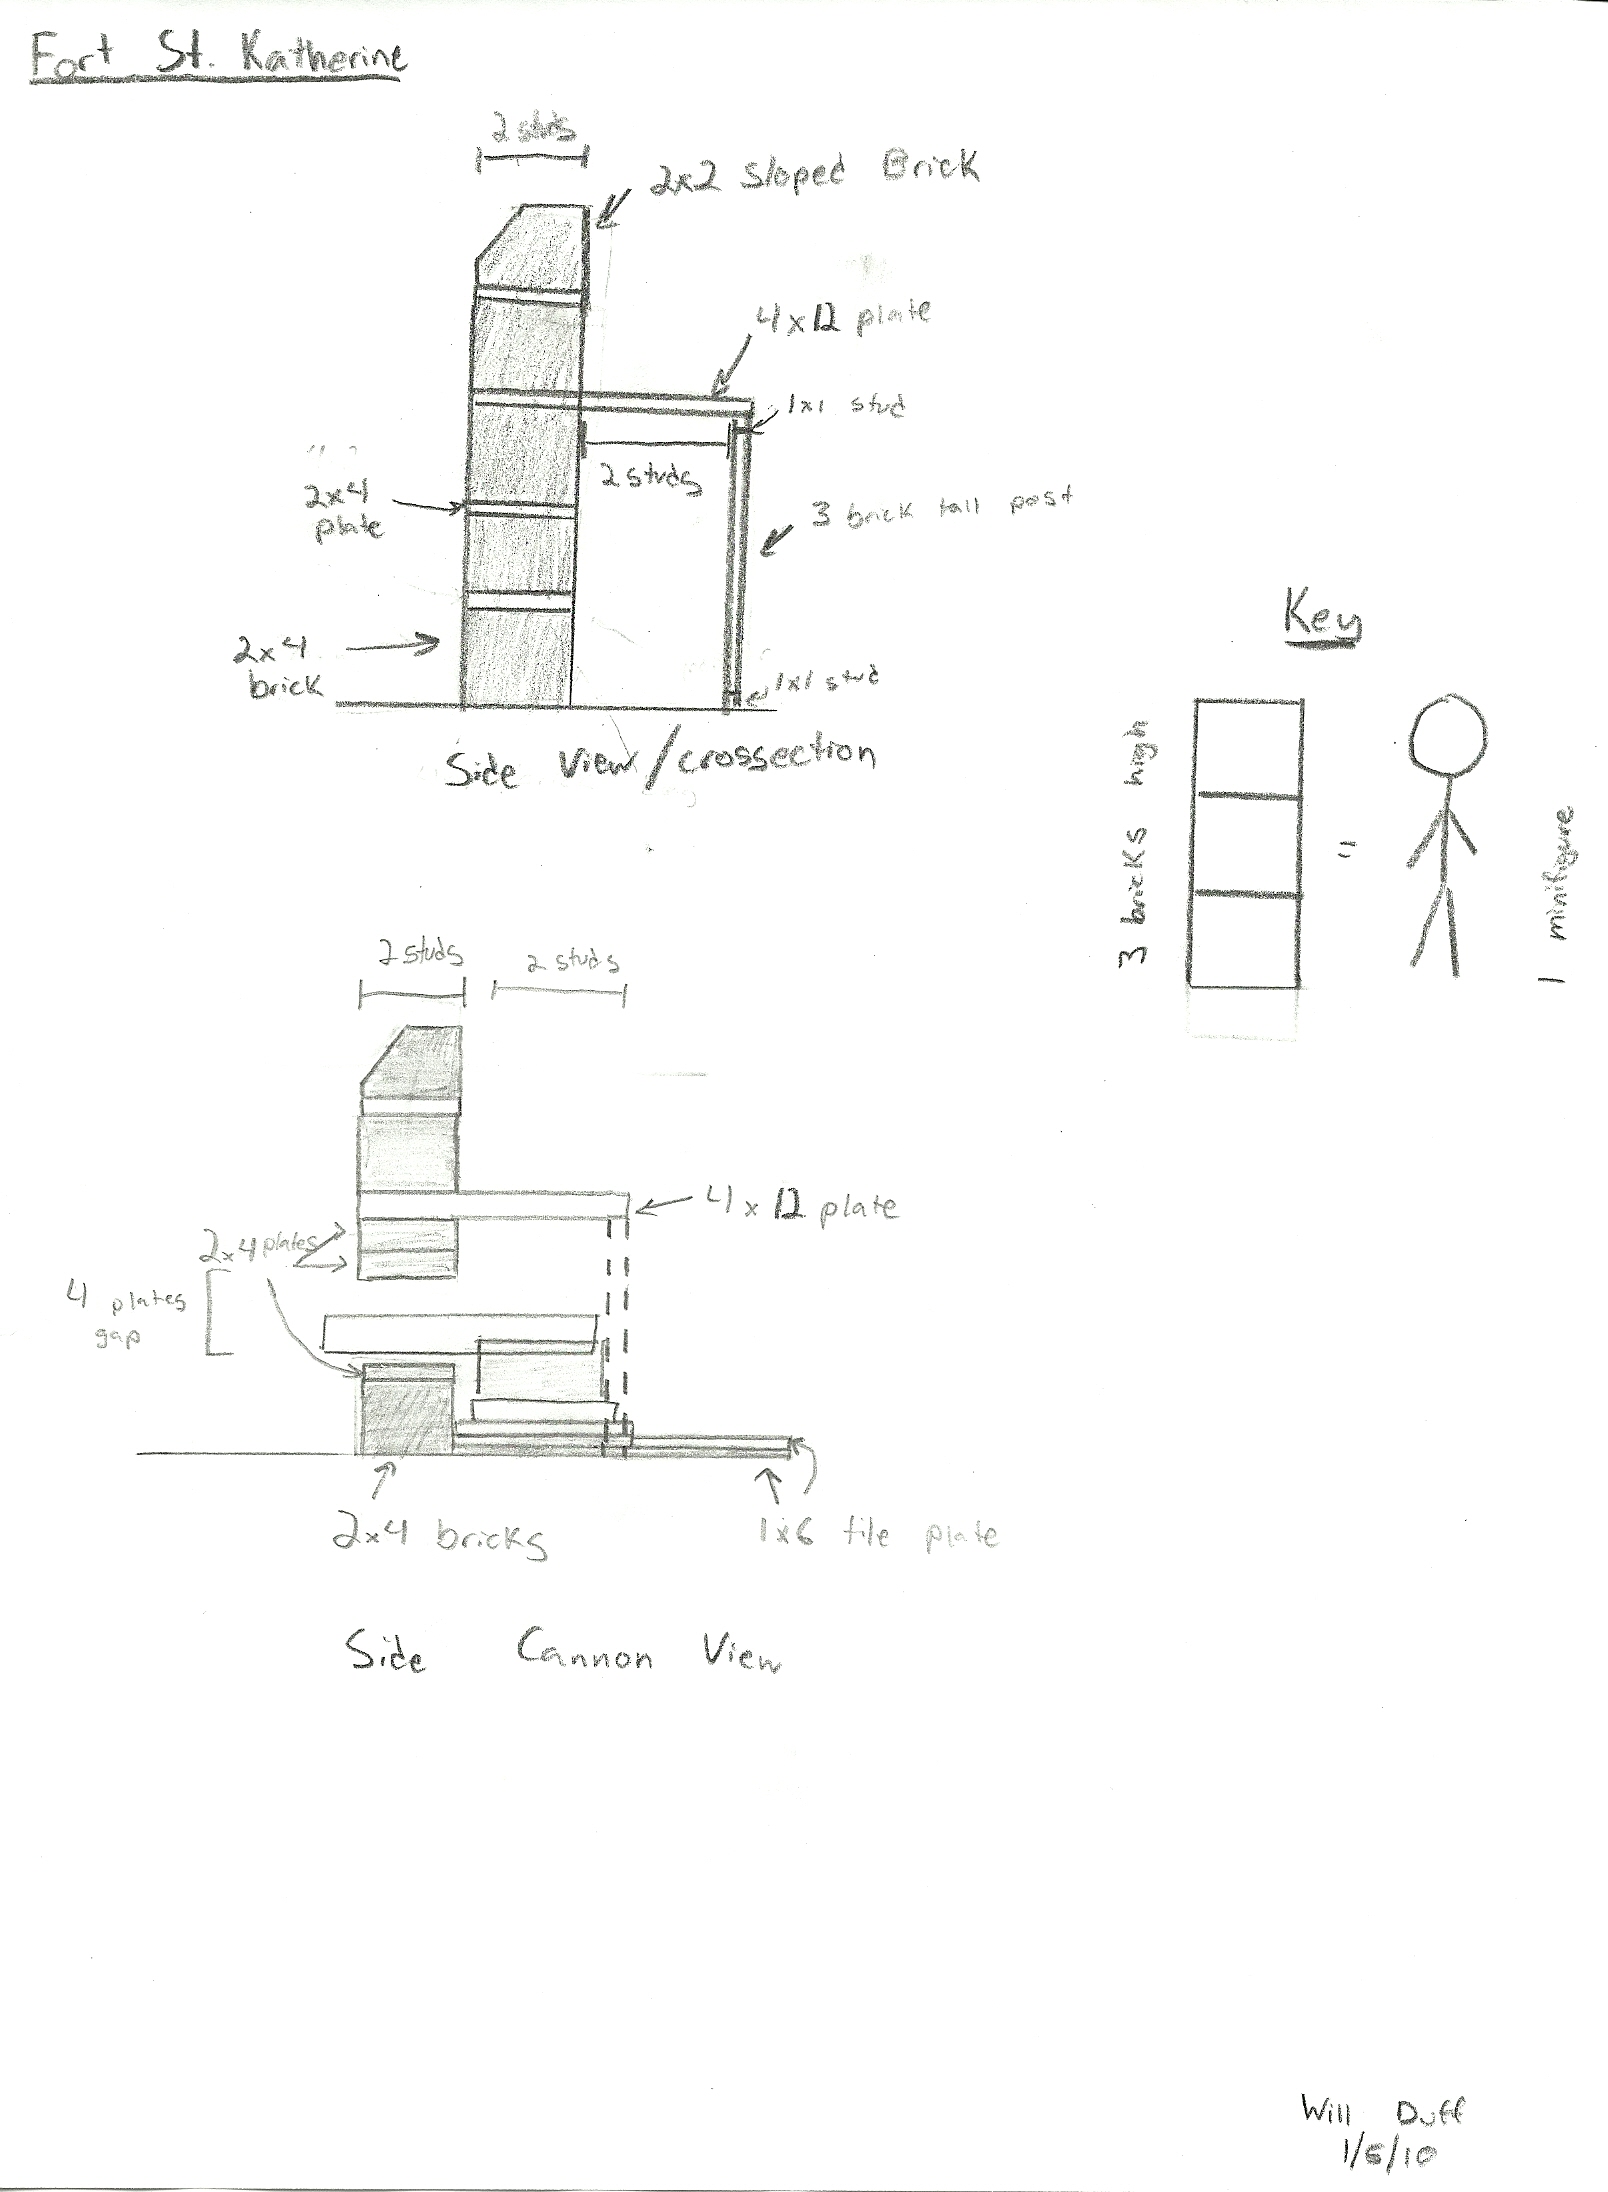 Fort St. Katherine
2 studs
2x2 Sloped Brick
4x12 plate
1x1 stud
2 studs
2x4
plate
3 brick tall post
2x4
brick
1x1 stud
Side View/crossection
Key
3 bricks high
=
1 minifigure
2 studs
2 studs
4x12 plate
2x4 plates
4 plates
gap
2x4 bricks
1x6 tile plate
Side Cannon View
Will Duff
1/5/10